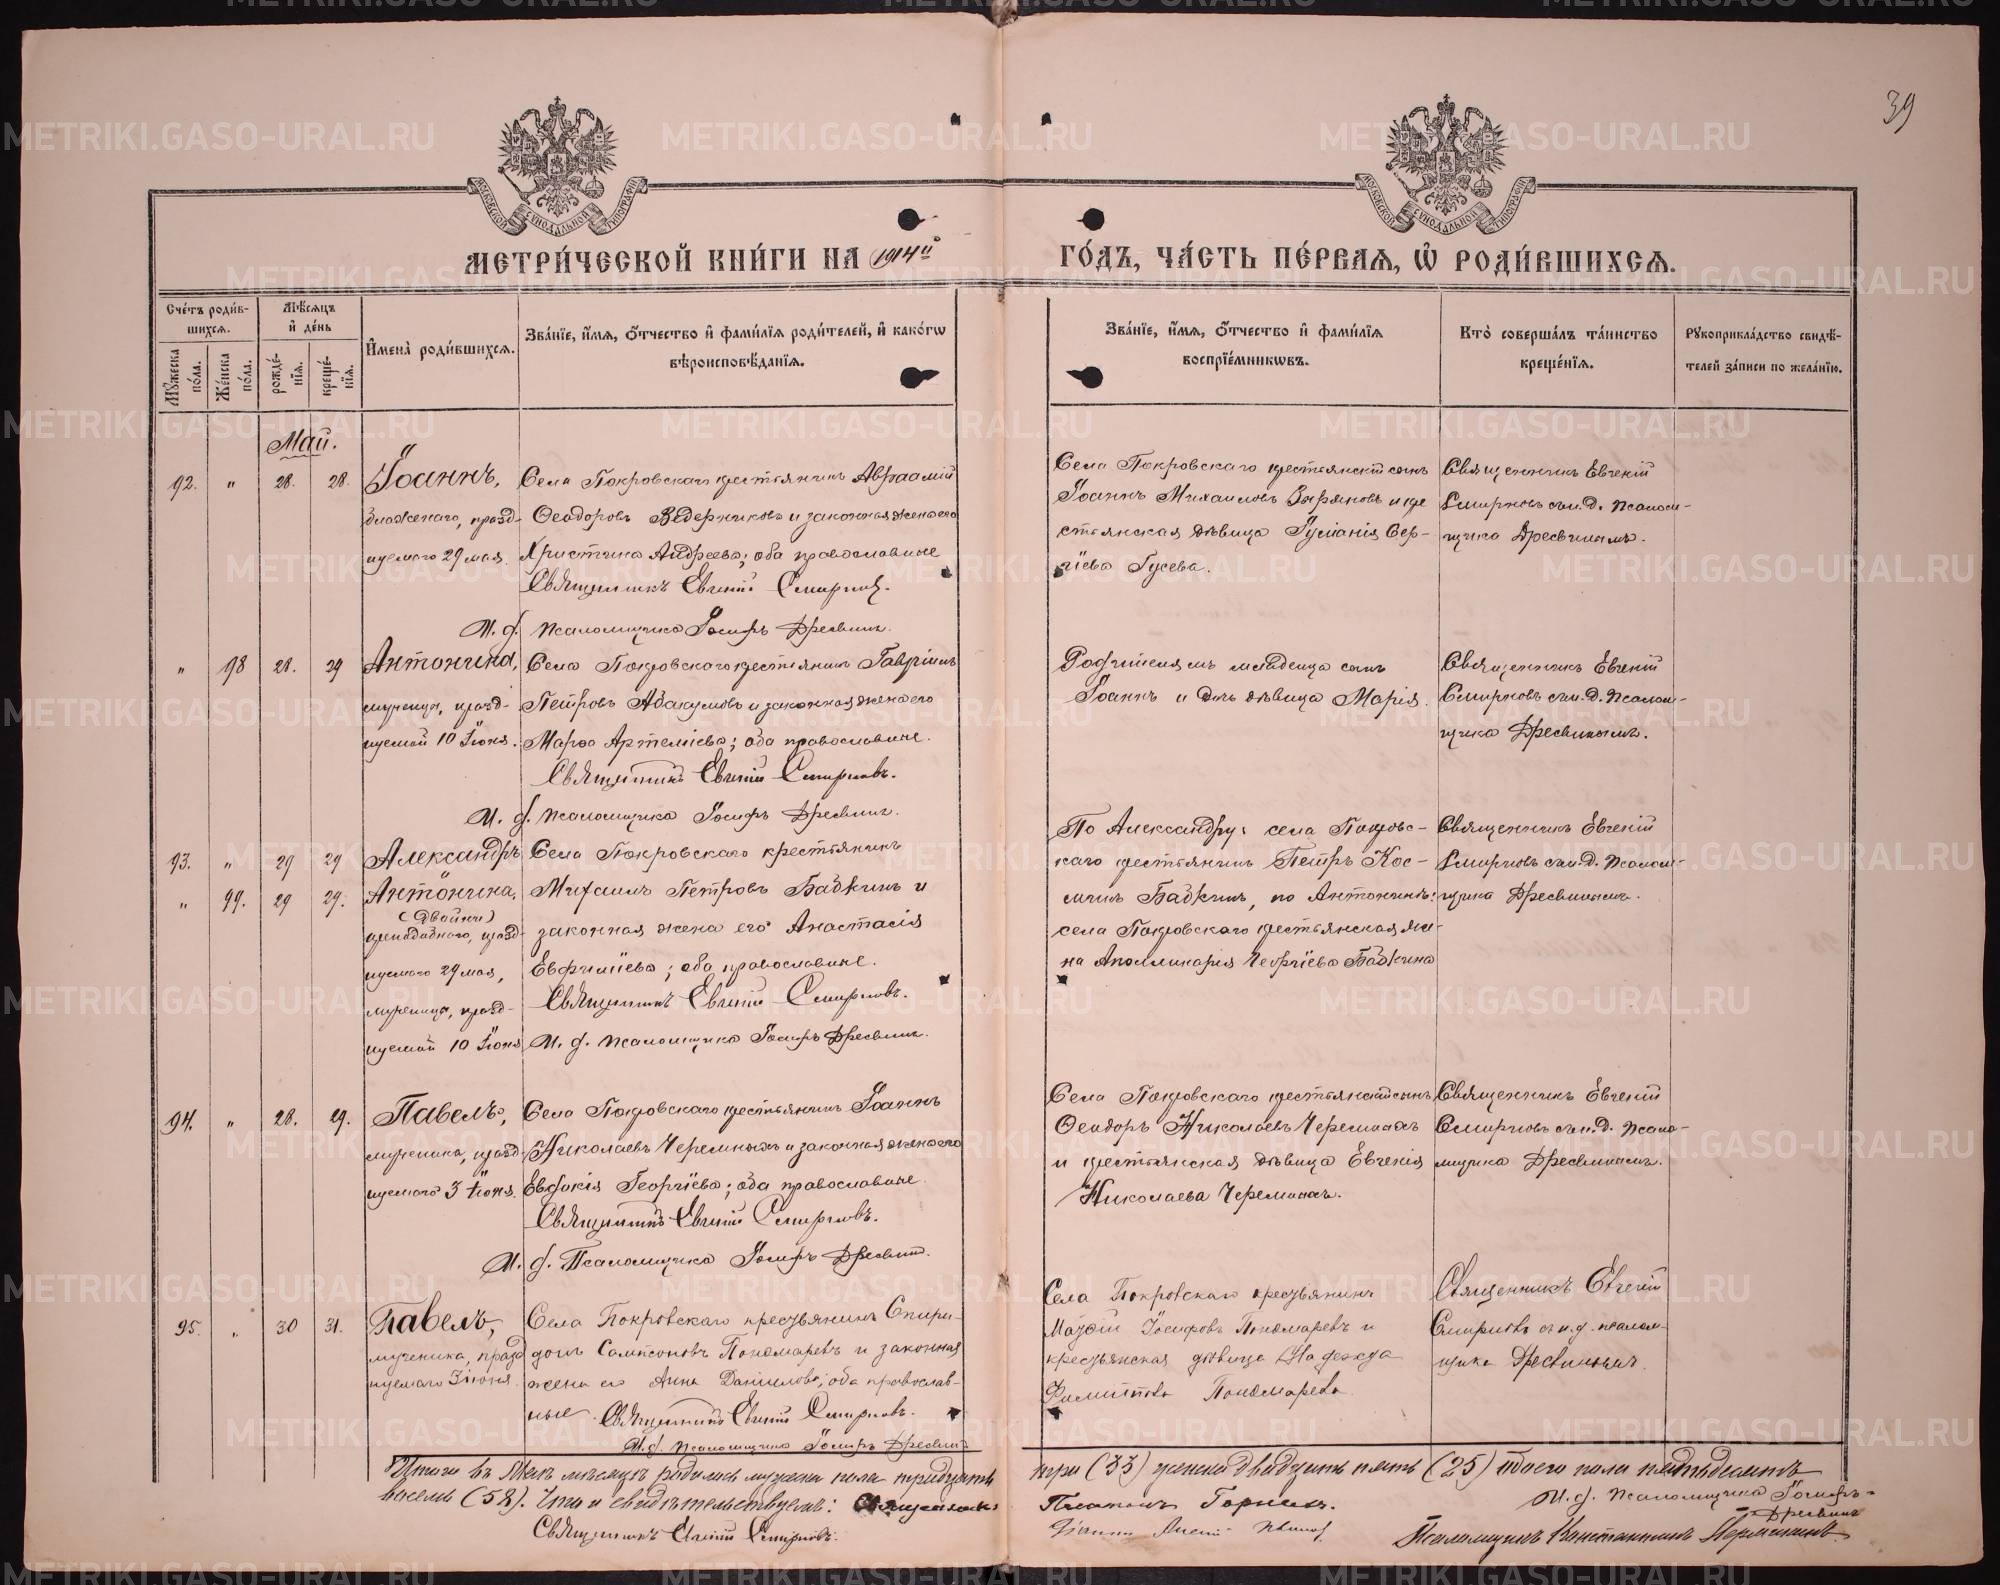 39
МОСКОВСКОЙ СѴНОДАЛЬНОЙ ТИПОГРАФІИ
МОСКОВСКОЙ СѴНОДАЛЬНОЙ ТИПОГРАФІИ
МЕТРИ́ЧЕСКОЙ КНИ́ГИ НА 1914й ГО́ДЪ, ЧА́СТЬ ПЕ́РВАѦ, Ѡ҆ РОДИ́ВШИХСѦ.
Сче́тъ роди́вшихсѧ.
Мꙋ́жеска по́ла.
Же́нска по́ла.
Мѣ́сѧцъ и҆ де́нь
рожде́нїѧ.
креще́нїѧ.
И҆мена̀ роди́вшихсѧ.
Зва́нїе, и҆́мѧ, ѻ҆́тчество и҆ фами́лїѧ роди́телей, и҆ како́гѡ вѣроисповѣ́данїѧ.
Зва́нїе, и҆́мѧ, ѻ҆́тчество и҆ фами́лїѧ воспрїе́мникѡвъ.
Кто̀ соверша́лъ та́инство креще́нїѧ.
Рꙋкоприкла́дство свидѣ́телей за́писи по жела́нїю.
Май.
92. " 28. 28.
Іоаннъ,
блаженаго, празд-
нуемаго 29 мая.
Села Покровскаго крестьянинъ Авраамій
Ѳеодоровъ Ведерниковъ и законная жена его
Христина Андреева; оба православные
Священникъ Евгеній Смирновъ.
И. д. псаломщика Іосифъ Дресвинъ.
Села Покровскаго крестьянскій сынъ
Іоаннъ Михаиловъ Зыряновъ и кре
стьянская дѣвица Іуліанія Сер-
гіева Гусева.
Священникъ Евгеній
Смирновъ съ и. д. псалом-
щика Дресвинымъ.
" 98 28. 29
Антонина,
мученица, празд-
нуемой 10 Іюня.
Села Покровскаго крестьянинъ Гавріилъ
Петровъ Абакумовъ и законная жена его
Марѳа Артеміева; оба православные.
Священникъ Евгеній Смирновъ.
И. д. псаломщика Іосифъ Дресвинъ.
Родителямъ младенца сынъ
Іоаннъ и дочь дѣвица Марія.
Священникъ Евгеній
Смирновъ съ и. д. псалом-
щика Дресвинымъ.
93. " 29 29
" 99. 29 29.
Александръ
Антонина,
(двойни)
преподобнаго, празд-
нуемаго 29 мая,
мученица, празд-
нуемой 10 Іюня
Села Покровскаго крестьянинъ
Михаилъ Петровъ Бабкинъ и
законная жена его Анастасія
Евфиміева; оба православные.
Священникъ Евгеній Смирновъ.
И. д. псаломщика Іосифъ Дресвинъ.
По Александру: села Покровс-
каго крестьянинъ Петръ Кос-
минъ Бабкинъ, по Антонинѣ:
села Покровскаго крестьянская же-
на Аполлинарія Георгіева Бабкина
Священникъ Евгеній
Смирновъ съ и. д. псалом-
щика Дресвинымъ.
94. " 28. 29.
Павелъ,
мученика, празд-
нуемаго 3 Іюня.
Села Покровскаго крестьянинъ Іоаннъ
Николаевъ Черемныхъ и законная жена его
Евдокія Георгіева; оба православные.
Священникъ Евгеній Смирновъ.
И. д. Псаломщика Іосифъ Дресвинъ.
Села Покровскаго крестьянскій сынъ
Ѳеодоръ Николаевъ Черемныхъ
и крестьянская дѣвица Евгенія
Николаева Черемныхъ.
Священникъ Евгеній
Смирновъ съ и. д. псало-
мщика Дресвинымъ.
95. " 30 31.
Павелъ,
мученика, празд
нуемаго 3 іюня.
Села Покровскаго крестьянинъ Спири-
донъ Сампсоновъ Пономаревъ и законная
жена его Анна Даніилова; оба православ-
ные. Священникъ Евгеній Смирновъ.
И. д. псаломщика Іосифъ Дресвинъ
Села Покровскаго крестьянинъ
Іосифовъ Пономаревъ и
крестьянская дѣвица Надежда
Филиппова Пономарева.
Священникъ Евгеній
Смирновъ съ и. д. псалом-
щика Дресвинымъ.
Итого въ Маѣ мѣсяцѣ родилось мужска пола тридцать три (33) женска двадцать пять (25) обоего пола пятьдесятъ
восемь (58). Что и свидѣтельствуемъ: Священникъ Платонъ Горныхъ.
Священникъ Евгеній Смирновъ.
И. д. псаломщика Іосифъ
Дресвинъ
Псаломщикъ Константинъ
METRIKI.GASO-URAL.RU